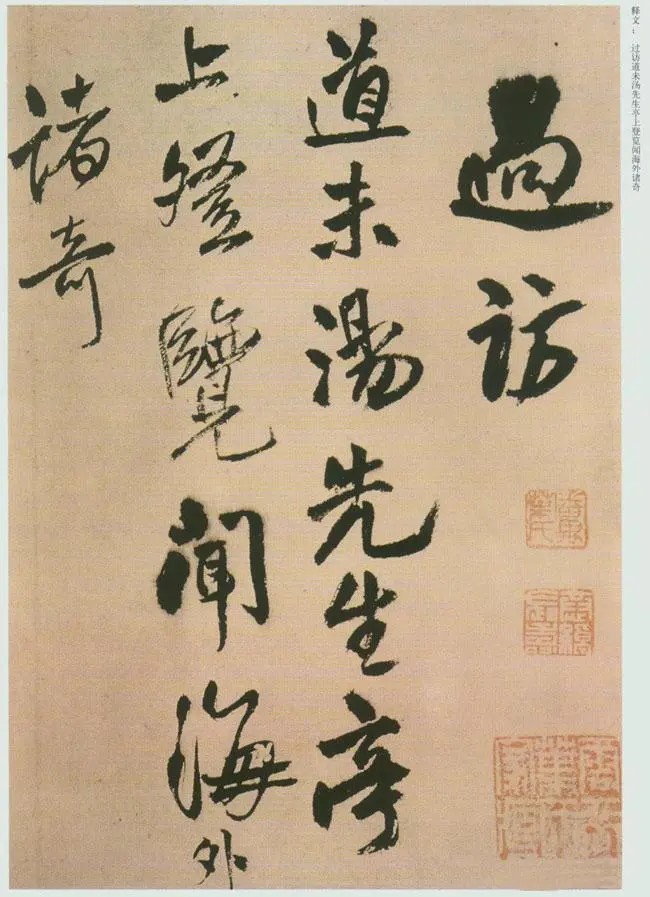 释文：过访道未汤先生亭上登览闻海外诸奇
過訪
道未湯先生亭
上登覽聞海外
諸奇